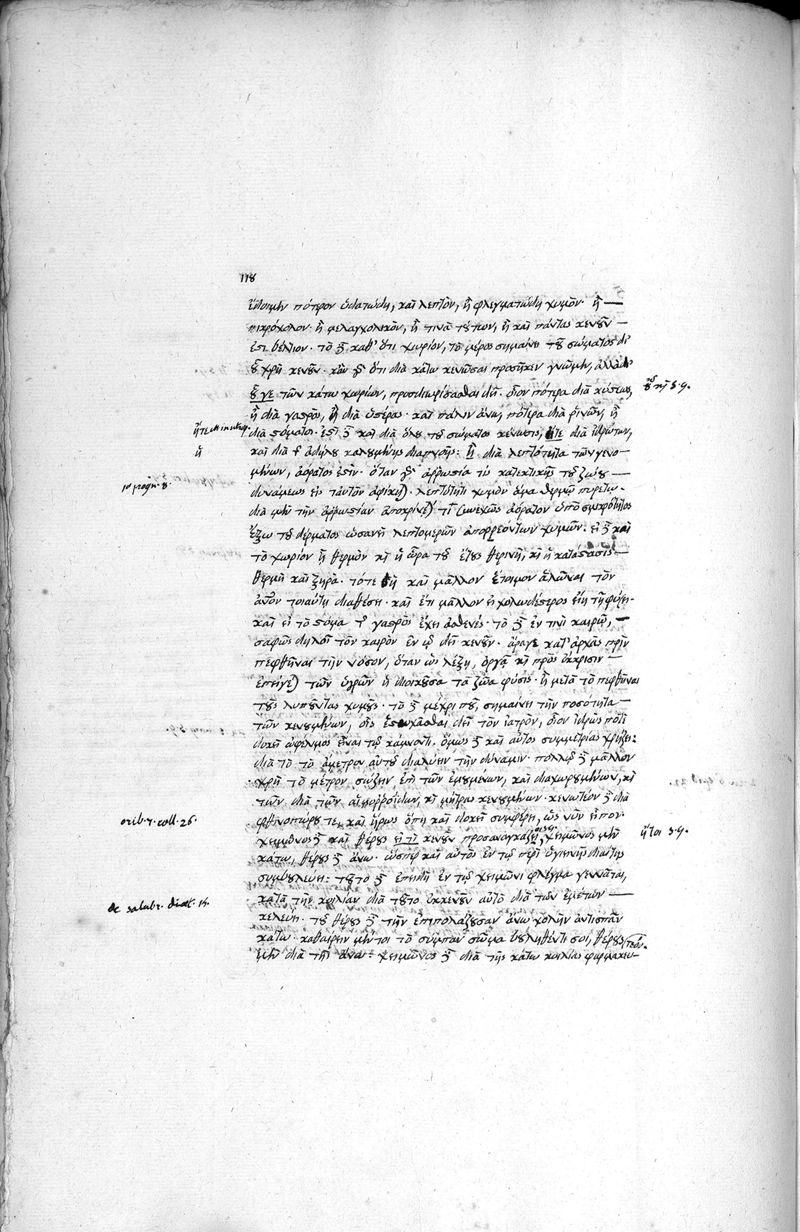 118
ἴδοιμεν πότερον ὑδατώδη, καὶ λεπτὸν, ἢ φλεγματώδη χυμὸν· ἢ
πικρόχολον· ἢ μελαγχολικὸν, ἢ τινὰ τούτων, ἢ καὶ πάντας κενοῦν
ἐστι βέλτιον· τὸ δὲ καθ' ὅτι χωρίον, τὸ μέρος σημαίνει τοῦ σώματος δι'
οὗ χρὴ κενοῦν· κἂν γὰρ ὅτι διὰ κάτω κενῶσαι προσῆκεν γνῶμεν, ἀλλὰ
τῶν κάτω χωρίων, προσδιορίσασθαι δεῖ· οἷον πότερα διὰ κύστεως,
ἢ διὰ γαστρὸς, ἢ διὰ ὑστέρας· καὶ πάλιν ἄνω, πότερα διὰ ῥινῶν, ἢ
διὰ στόματος· ἐστὶ δὲ καὶ διὰ ὅλου τοῦ σώματος κένωσις, διὰ ἱδρώτων,
καὶ διὰ τῆς ἀδήλου καλουμένης διαπνοῆς· ἢ διὰ λεπτότητα τῶν γενο
μένων, ἀόρατος ἐστίν· ὅταν γὰρ ἀρρωστία τῆς καθεκτικῆς τοῦ ζώου
δυνάμεως εἰς ταὐτὸν ἀφίκηται λεπτότητι χυμῶν ἅμα θερμῷ πυρετώ
διὰ μὲν τὴν ἀρρωστίαν ἀποκρίνεταί τι συνεχῶς ἀόρατον ὑπὸ σμικρότητος
ἔξω τοῦ δέρματος ὡσανεὶ λεπτομερῶν ἀπορρεόντων χυμῶν· εἰ δὲ καὶ
τὸ χωρίον ἢ θερμὸν καὶ ἡ ὥρα τοῦ ἔτους θερινὴ, καὶ ἡ κατάστασις
θερμὴ καὶ ξηρὰ· τότε καὶ μᾶλλον ἕτοιμον ἁλῶναι τὸν
ἄνθρωπον τοιαύτῃ διαθέσει· καὶ ἔτι μᾶλλον εἰ χολωδέστερος εἴη τῇ φύσει·
καὶ εἰ τὸ στόμα τῆς γαστρὸς ἔχει ἀσθενές· τὸ δὲ ἐν τίνι καιρῷ,
σαφῶς δηλοῖ τὸν καιρὸν ἐν ᾧ δεῖ κενοῦν· ἆραγε κατ' ἀρχὰς πρὶν
πεφθῆναι τὴν νόσον, ὅταν ὡς λέξῃ, ὀργᾷ καὶ πρὸς ἔκκρισιν
ἐπείγεται τῶν ὑγρῶν ἡ διοικοῦσα τὰ ζῶα φύσις· ἢ μετὰ τὸ πεφθῆναι
τοὺς λυποῦντας χυμούς· τὸ δὲ μέχρι ποῦ, σημαίνει τὴν ποσότητα
τῶν κενουμένων, οἷς ἐστοχάσθαι δεῖ τὸν ἰατρὸν, οἷον ἱδρὼς ποτὲ
δοκεῖ ὠφέλιμος εἶναι τῷ κάμνοντι, ὅμως δὲ καὶ αὐτὸς συμμετρίας χρῄζει·
διὰ τὸ τὸ ἄμετρον αὐτοῦ διαλύειν τὴν δύναμιν· πολλῷ δὲ μᾶλλον
χρὴ τὸ μέτρον σώζειν ἐπὶ τῶν ἐμουμένων, καὶ διαχωρουμένων, καὶ
τῶν διὰ τῶν αἱμορροΐδων, καὶ μήτρας κενουμένων· κενωτέον δὲ διὰ
φθινοπώρου τε, καὶ ἦρος ὅπη καὶ δοκεῖ συμφέρειν, ὡς νῦν εἶπον·
χειμῶνος δὲ καὶ θέρους εἴ τι κενοῦν προσαναγκάζει, χειμῶνος μὲν
κάτω, θέρους δὲ ἄνω· ὥσπερ καὶ αὐτὸς ἐν τῷ περὶ ὑγιεινῆς διαίτης
συμβουλεύει· τοῦτο δὲ ἐπειδὴ ἐν τῷ χειμῶνι φλέγμα γεννᾶται,
κατὰ τὴν κοιλίαν διὰ τοῦτο ἐκκενοῦν αὐτὸ διὰ τῶν ἐμέτων
κελεύει· τοῦ θέρους δὲ τὴν ἐπιπολάζουσαν ἄνω χολὴν ἀντισπᾶν
κάτω· καθαίρειν μέντοι τὸ σύμπαν σῶμα βουληθέντι σοι, θέρους
μὲν διὰ τῆς ἄνω· χειμῶνος δὲ διὰ τῆς κάτω κοιλίας φαρμακευ
τέον·
orib. 7. coll. 26.
de salubr. diaet.
ἤτοι